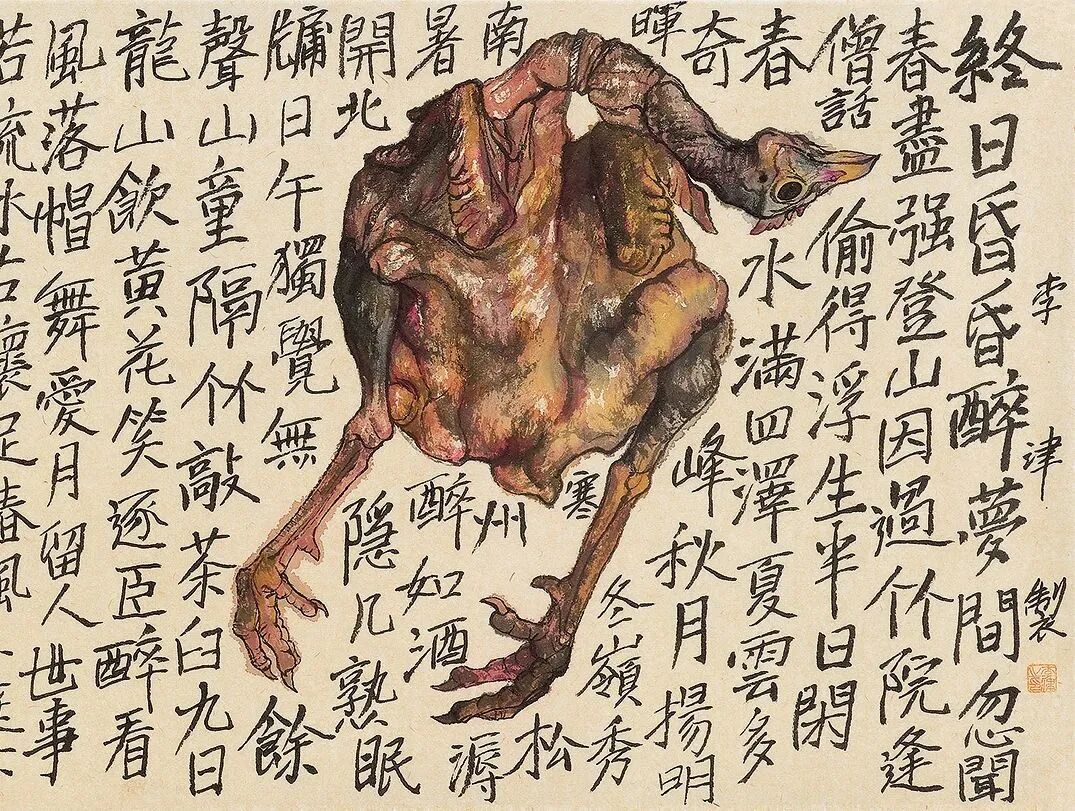 李津製
終日昏昏醉夢間忽聞
春盡强登山因過竹院逢
僧話偷得浮生半日閑
春水滿四澤夏雲多
奇峰秋月揚明
暉冬嶺秀
寒松
南州溽
暑醉如酒
隐几熟眠
開北
牖日午獨覺無餘
聲山童隔竹敲茶臼九日
龍山飲黃花笑逐臣醉看
風落帽舞愛月留人世事
若流水足春風